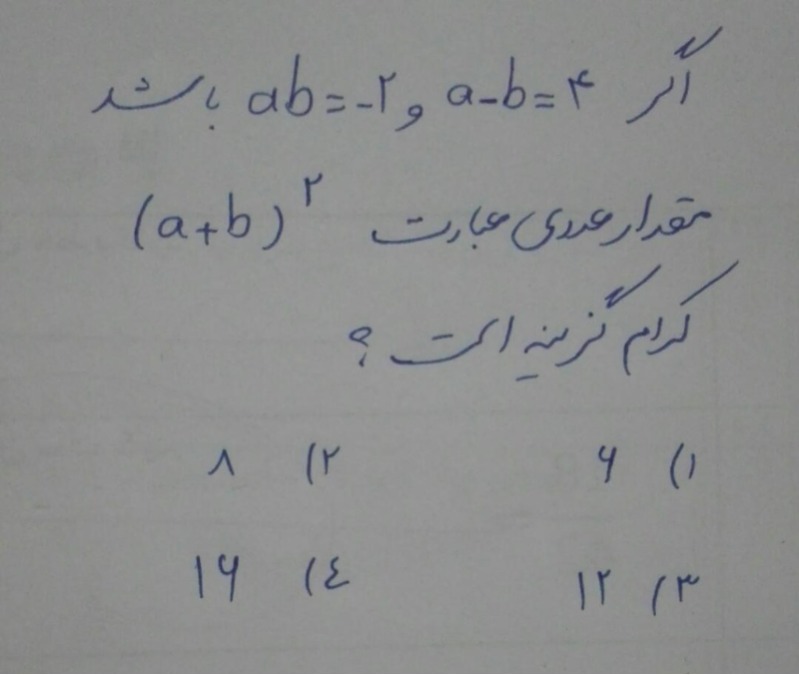 اگر a-b=۴ و ab=-۲ باشد
مقدار عددی عبارت (a+b)^۲
کدام گزینه است ؟
۱) ۶ ۲) ۸
۳) ۱۲ ٤) ۱۶